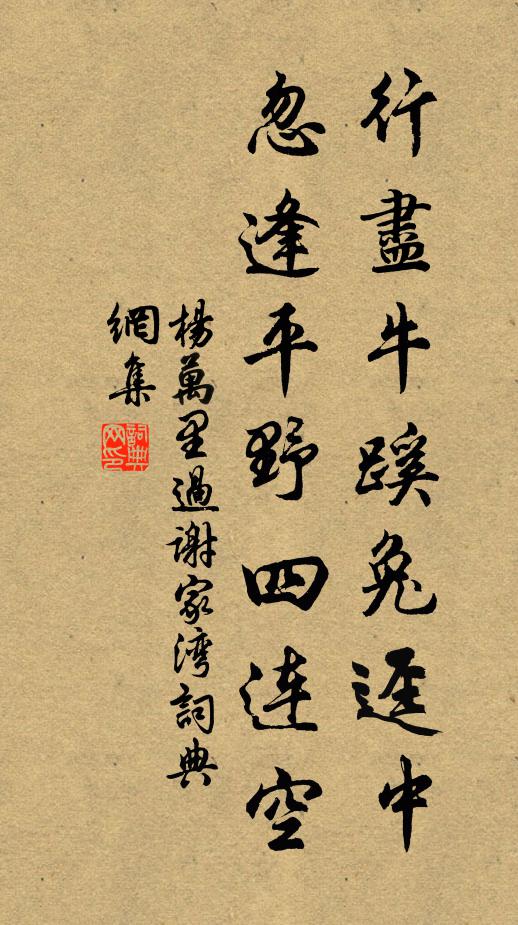 行盡牛蹊兔逕中
忽逢平野四連空
楊萬里過謝家湾詞典
網集
詞典
网印